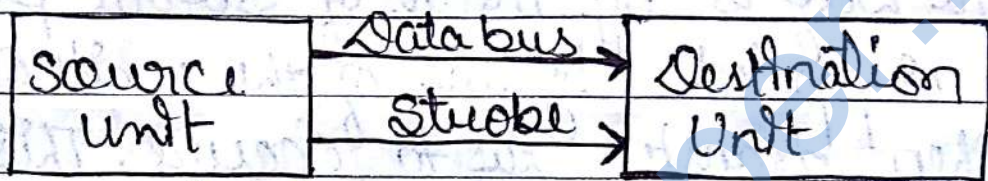 Source
Unit
Data bus
Strobe
Destination
Unit